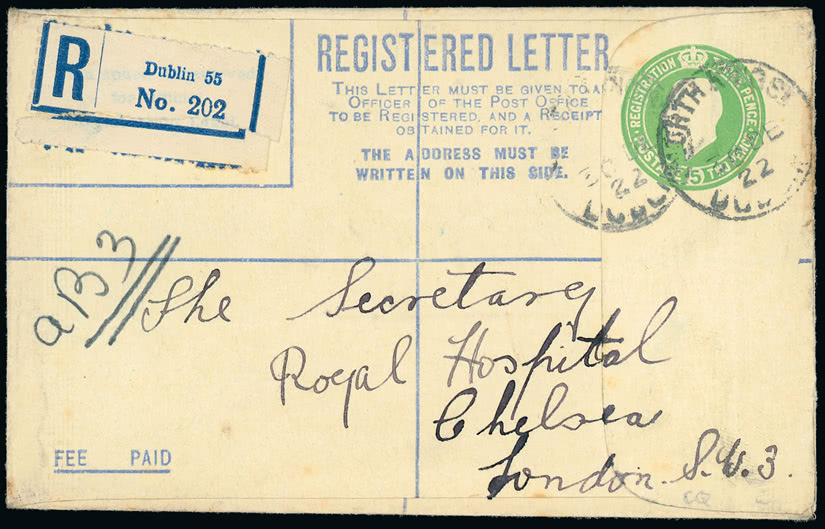 R
Dublin 55
No. 202
REGISTERED LETTER
THIS LETTER MUST BE GIVEN TO AN
OFFICER OF THE POST OFFICE
TO BE REGISTERED, AND A RECEIPT
OBTAINED FOR IT.
THE ADDRESS MUST BE
WRITTEN ON THIS SIDE.
REGISTRATION
PENCE
POSTAGE
22
22
aB3
The Secretary
Royal Hospital
Chelsea
London. S.W.3.
FEE PAID